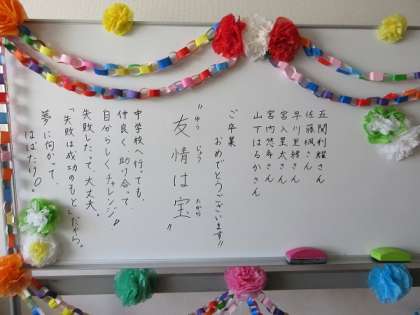 五間利耀さん
佐藤楓さん
早川里緒さん
宮入星太さん
宮内悠斗さん
山下はるかさん
ご卒業
おめでとうございます!!
"友情は宝"
ゆう じょう たから
中学校へ行っても、
仲良く助け合って
自分らしくチャレンジ♪
失敗したって大丈夫。
「失敗は成功のもと」だから。
夢に向かって、
はばたけ